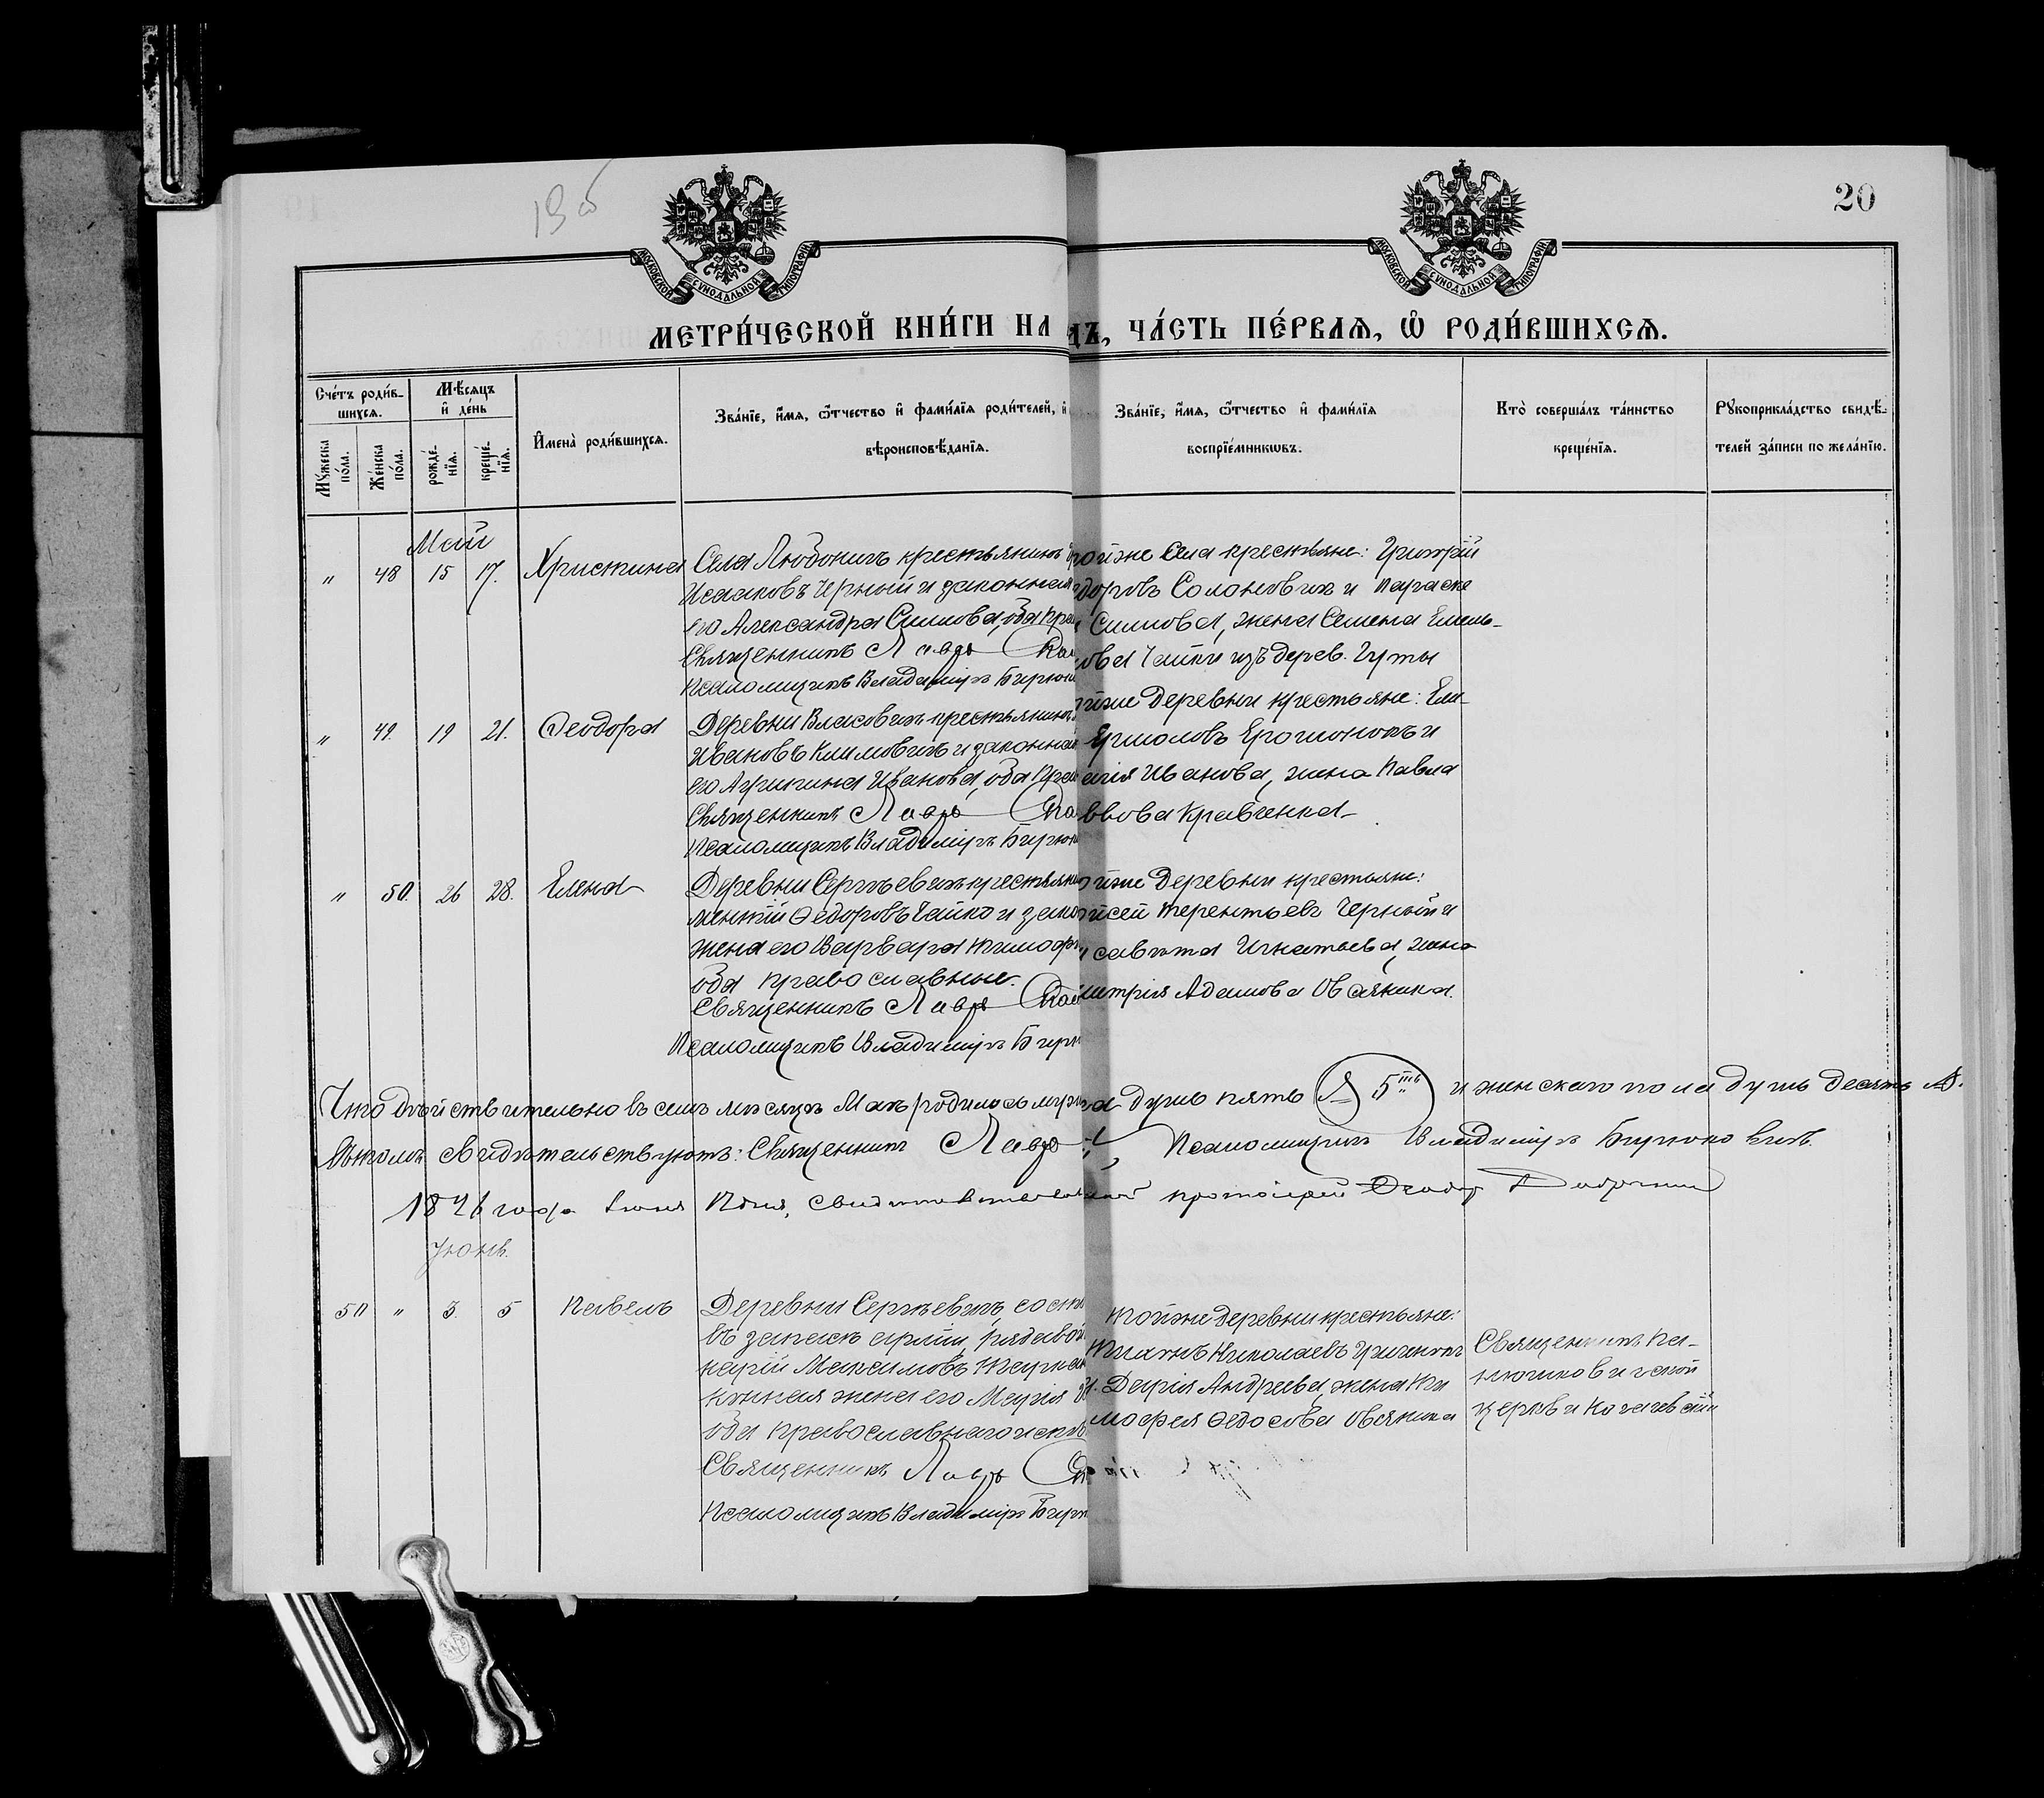 19об
20
МОСКОВСКОЙ СУНОДАЛЬНОЙ ТИПОГРАФІИ
МОСКОВСКОЙ СУНОДАЛЬНОЙ ТИПОГРАФІИ
МЕТРИ́ЧЕСКОЙ КНИ́ГИ НА
дъ, ЧА́СТЬ ПЕ́РВАѦ, Ѡ РОДИ́ВШИХСѦ.
Сче́тъ роди́в-
шихся.
Мѣ́сяцъ
и҆ де́нь
Мꙋ́жеска по́ла.
Же́нска по́ла.
рожде́-нїя.
креще́-нїя.
И҆мена̀ роди́вшихся.
Зва́нїе, и҆́мя, ѻ҆́тчество и҆ фами́лїя роди́телей, и҆
вѣроисповѣ́данїя.
Зва́нїе, и҆́мя, ѻ҆́тчество и҆ фами́лїя
воспрїе́мникѡвъ.
Кто̀ соверша́лъ та́инство
креще́нїя.
Рꙋкоприкла́дство свидѣ́-
телей за́писи по жела́нїю.
Май
" 48 15 17. Христина
Села Любоничъ крестьянинъ
Исааковъ Черный и законная
его Александра Симова, оба пра
Священникъ Лавръ
Псаломщикъ Владиміръ Бирюк
ойже села крестьяне: Григорій
доровъ Солановичъ и Параске
Симова, жена Семена Емель-
ова Чайки изъ дерев. Гуты
" 49. 19 21. Ѳеодора
Деревни Власовичъ крестьянинъ
Ивановъ Климовичъ и законная
его Агрипина Иванова, оба прав
Священникъ Лавръ
Псаломщикъ Владиміръ Бирюк
йже деревни крестьяне: Ели-
Ермоловъ Ерошонокъ и
Иванова, жена Павла
ввова Кравченка
" 50. 26 28. Елена
Деревни Сергѣевичъ крестьян
Ѳедоровъ Чайко и зако
жена его Варвара Тимоф
оба православные.
Священникъ Лавръ
Псаломщикъ Владиміръ Бирю
йже деревни крестьяне:
йсей Терентьевъ Черный и
савета Игнатьева, жена
митрія Адамова Овсяника.
Что дѣйствительно въ семъ мѣсяцѣ Маѣ родилось муж
а душъ пять 5ть и женскаго пола душъ десять
Въ томъ свидѣтельствуютъ: Священникъ Лавръ
Псаломщикъ Владиміръ Бирюковичъ.
года Іюня
протоіерей
Іюнь.
50 " 3 5 Павелъ
Деревни Сергѣевичъ, состо
въ запасѣ арміи, рядовой
Максимовъ
конная жена его Марія
оба православнаго испов
Священникъ Лавръ
Псаломщикъ Владиміръ Бирю
тойже деревни крестьяне:
Николаевъ
Дарія Андреева, жена Ти
мофея Ѳедосова Овсяника
Священникъ Па-
ской
церкви